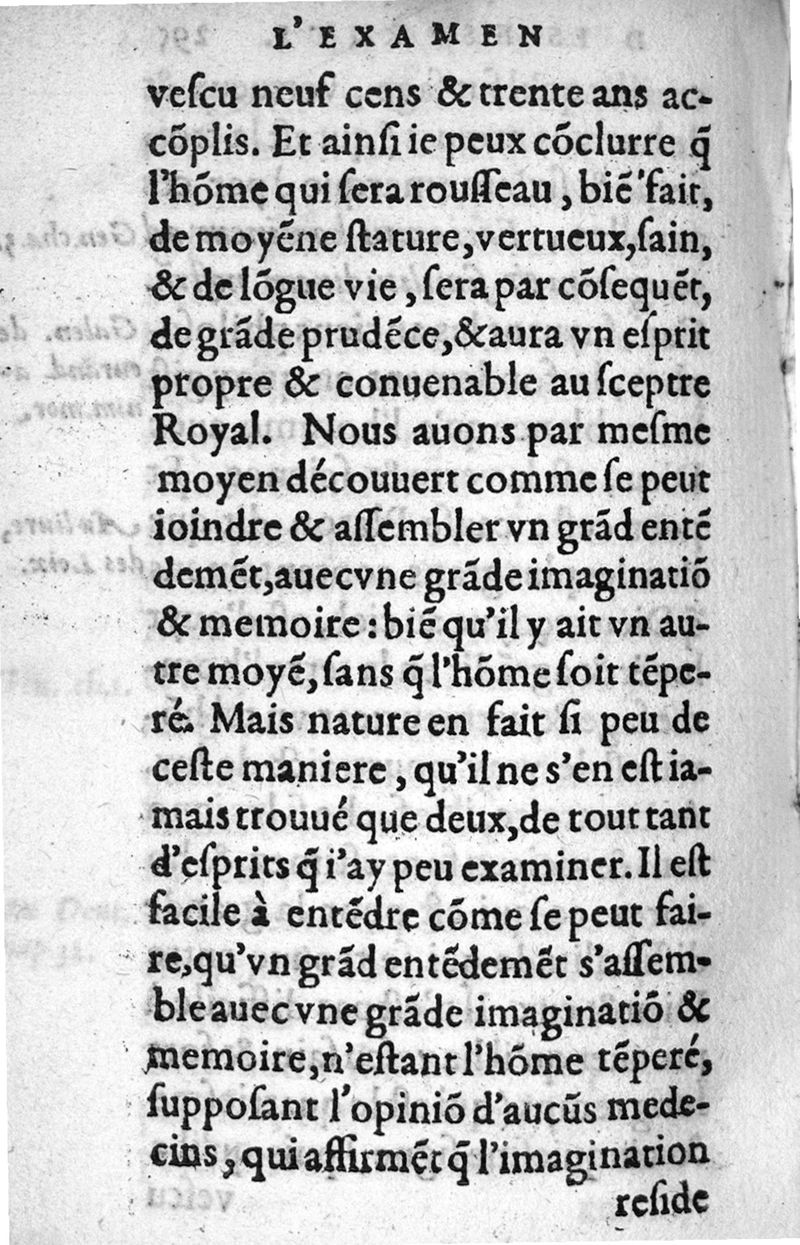 L'EXAMEN
veſcu neuf cens & trente ans ac-
cõplis. Et ainſi ie peux cõclurre q̃
l'hõme qui ſera rouſſeau, biẽ fait,
de moyẽne ſtature, vertueux, ſain,
& de lõgue vie, ſera par cõſequẽt,
de grãde prudẽce, & aura vn eſprit
propre & conuenable au ſceptre
Royal. Nous auons par meſme
moyen découuert comme ſe peut
ioindre & aſſembler vn grãd entẽ
demẽt, auec vne grãde imaginatiõ
& memoire: biẽ qu'il y ait vn au-
tre moyẽ, ſans q̃ l'hõme ſoit tẽpe-
ré. Mais nature en fait ſi peu de
ceſte maniere, qu'il ne s'en eſt ia-
mais trouué que deux, de tout tant
d'eſprits q̃ i'ay peu examiner. Il eſt
facile à entẽdre cõme ſe peut fai-
re, qu'vn grãd entẽdemẽt s'aſſem-
ble auec vne grãde imaginatiõ &
memoire, n'eſtant l'hõme tẽperé,
ſuppoſant l'opiniõ d'aucũs mede-
cins, qui affirmẽt q̃ l'imagination
reſide